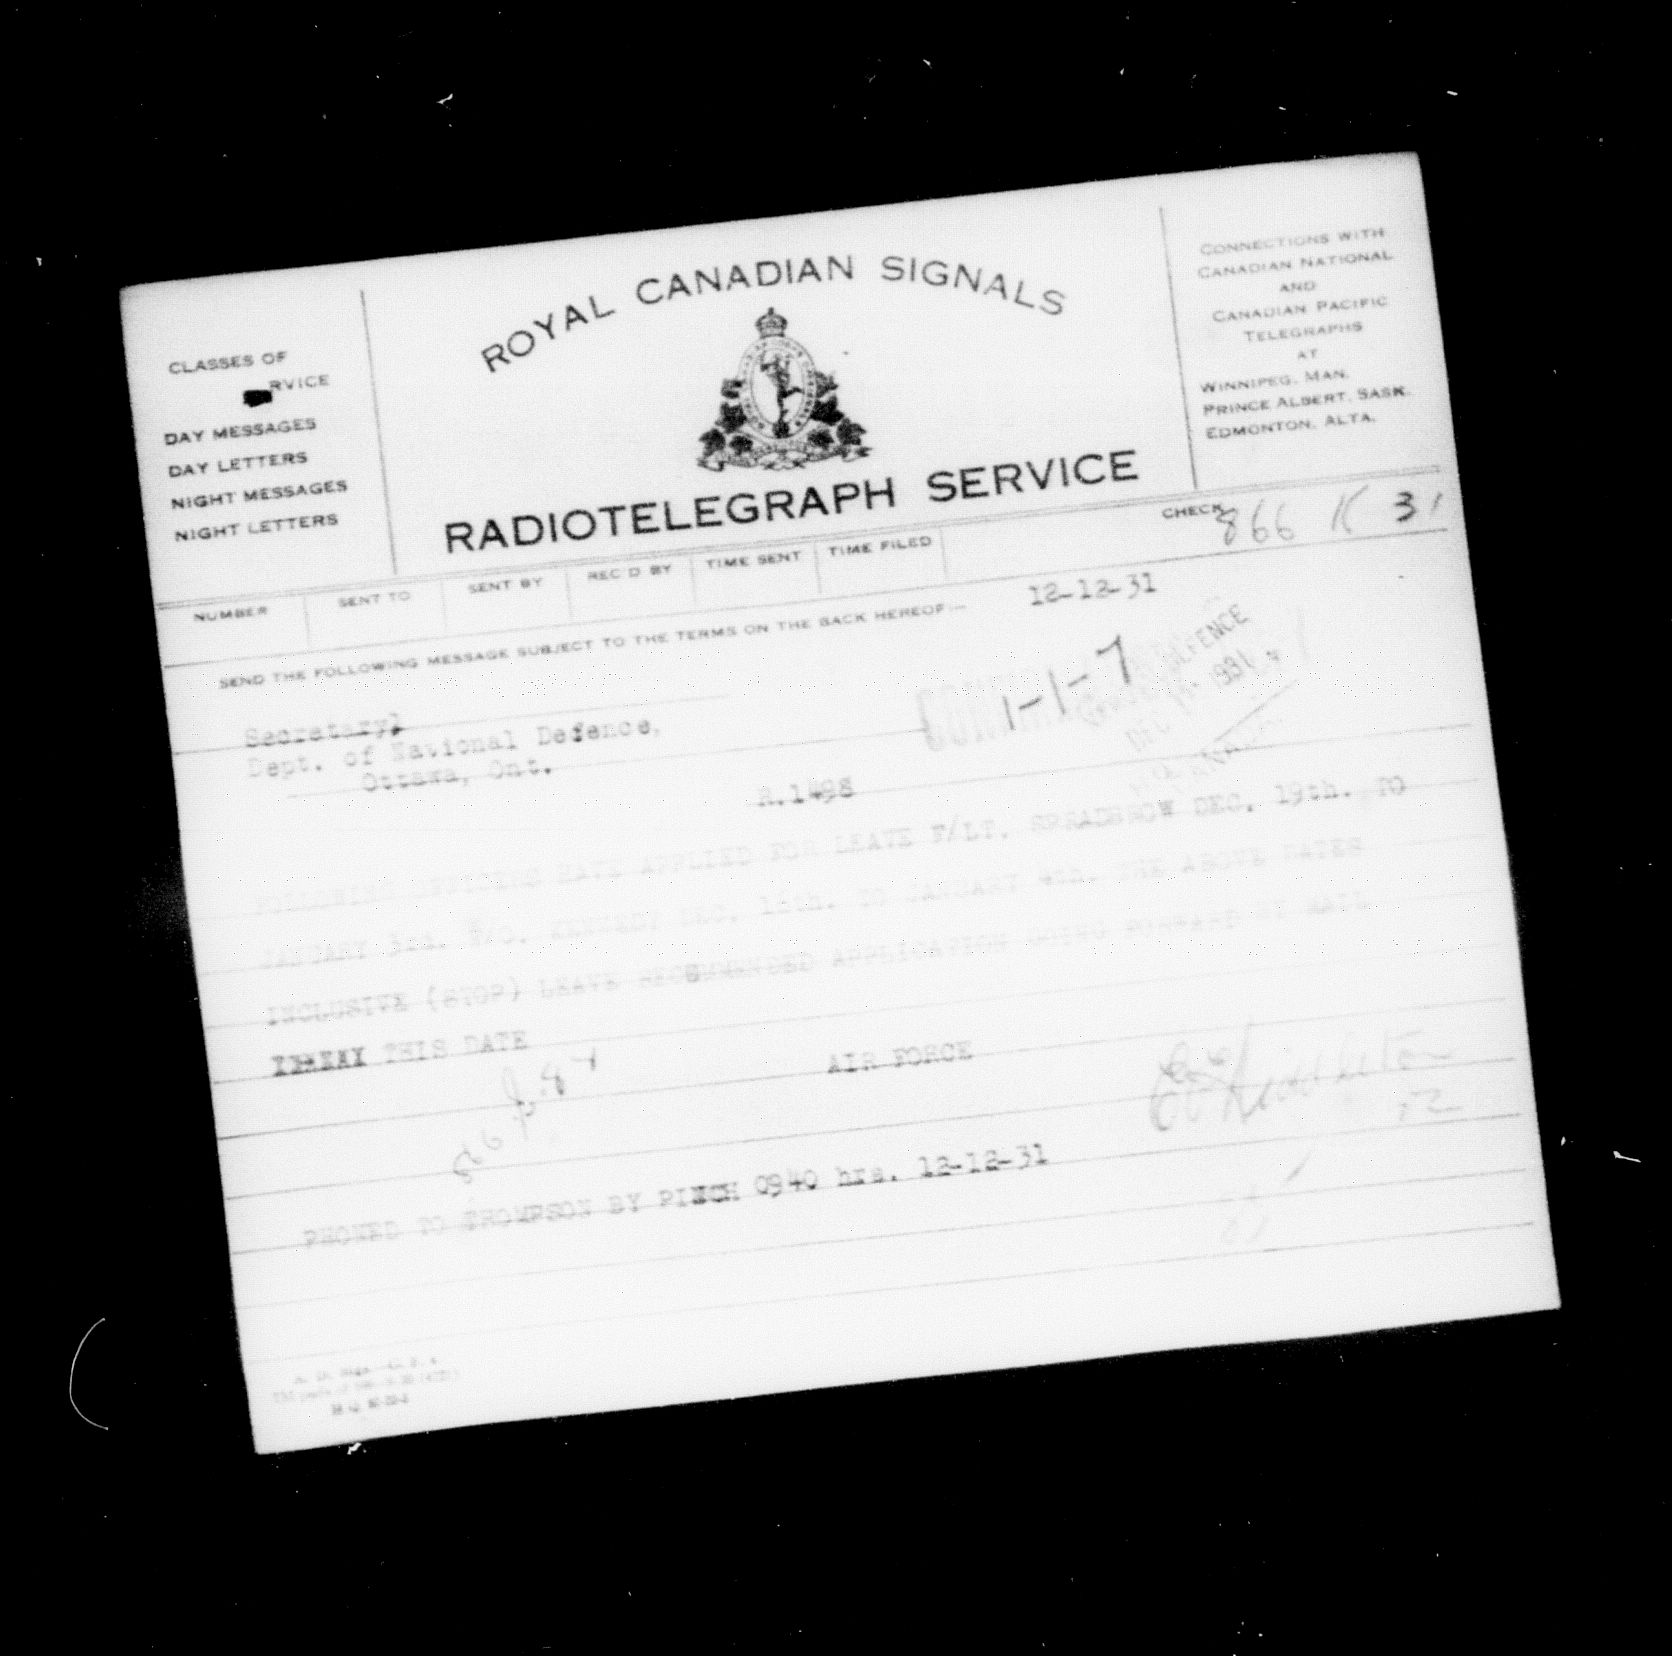 CLASSES OF
RVICE
DAY MESSAGES
DAY LETTERS
NIGHT MESSAGES
NIGHT LETTERS
ROYAL CANADIAN SIGNALS
RADIOTELEGRAPH SERVICE
CONNECTIONS WITH
CANADIAN NATIONAL
AND
CANADIAN PACIFIC
TELEGRAPHS
AT
WINNIPEG, MAN.
PRINCE ALBERT, SASK.
EDMONTON, ALTA.
CHECK 866 K 31
NUMBER SENT TO SENT BY REC'D BY TIME SENT TIME FILED
SEND THE FOLLOWING MESSAGE SUBJECT TO THE TERMS ON THE BACK HEREOF:—
12-12-31
1-1-7
DEFENCE
1931
Secretary,
Dept. of National Defence,
Ottawa, Ont.
R.1498
FOLLOWING OFFICERS HAVE APPLIED FOR LEAVE F/LT. SPREADBROW DEC. 19th. TO
JANUARY 3rd. F/O. KENNEDY DEC. TO JANUARY 4th. THE ABOVE DATES
INCLUSIVE (STOP) LEAVE RECOMMENDED APPLICATION GOING FORWARD BY MAIL
THIS DATE
AIR FORCE
PHONED TO THOMPSON BY PINCH 0940 hrs. 12-12-31